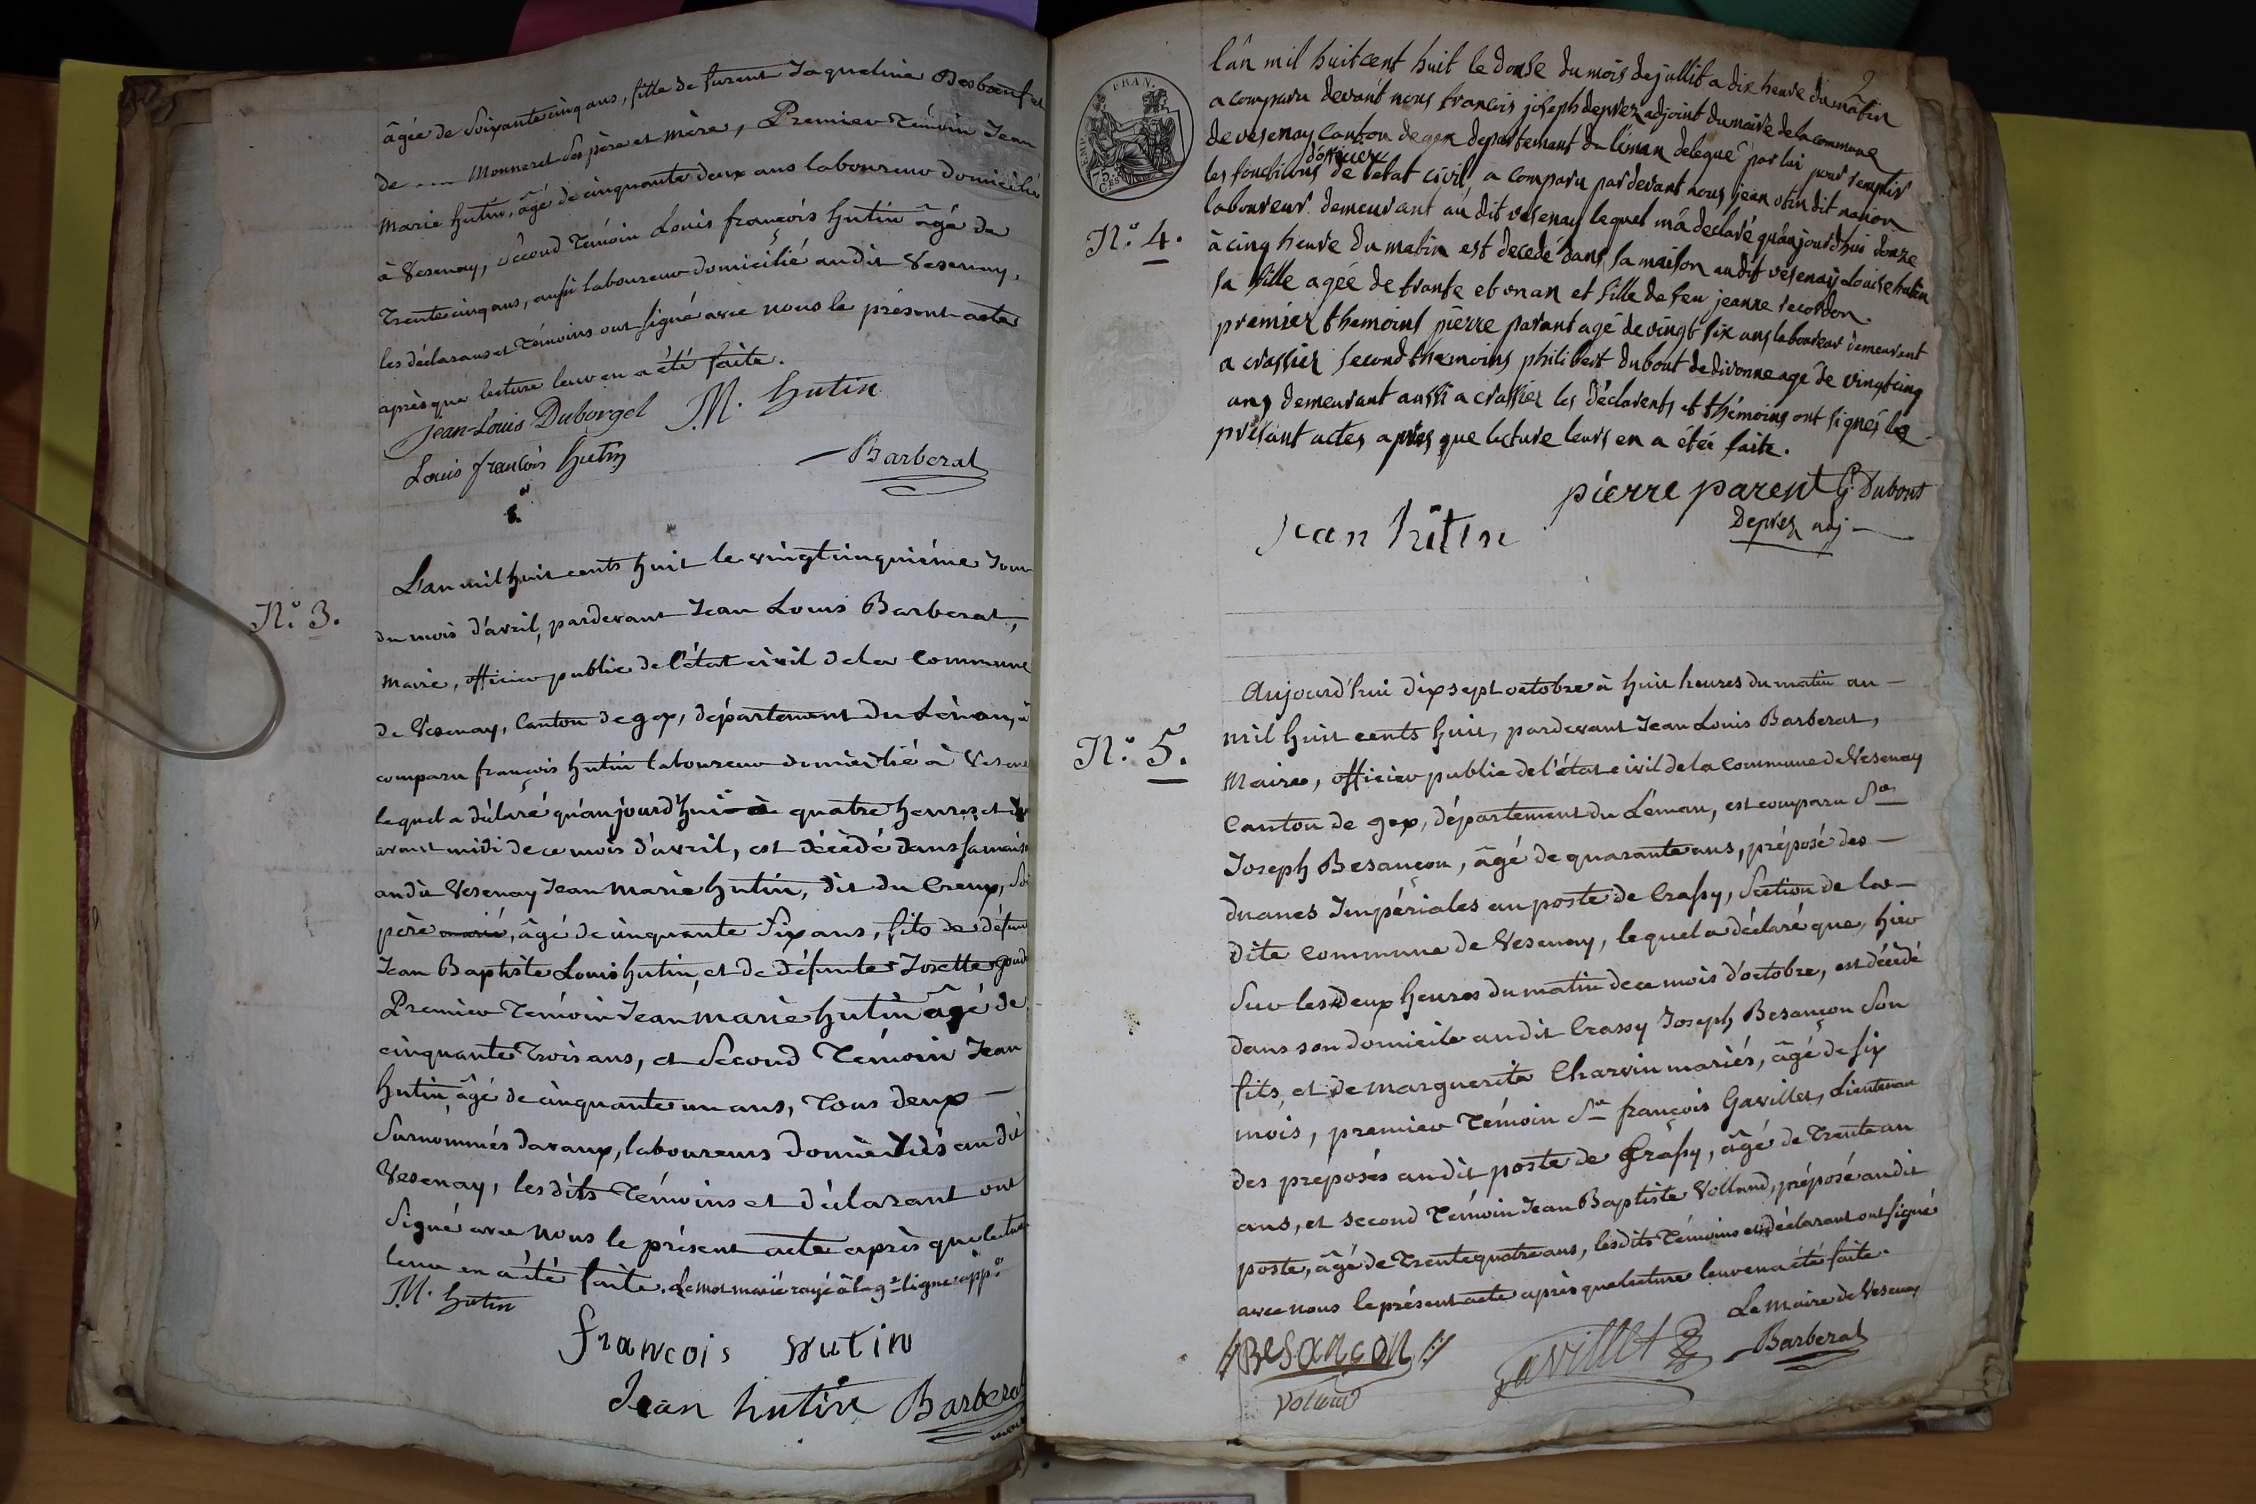 âgée de Soixante cinq ans, fille de furent Jaqueline Desboeuf et
de .... Monneret ses père et mère, Premier Témoin Jean
Marie hutin, âgé de cinquante deux ans laboureur domicilié
à Vesenay, second Témoin Louis françois hutin âgé de
Trente cinq ans, aussi laboureur domicilié audit Vesenay,
les déclarans et Témoins ont signé avec nous le présent acte
après que lecture leur en a été faite.
Jean-Louis Duborgel J.M. hutin
Louis françois hutin
Barberat
N.º 3.
L'an mil huit cents huit le vingt cinquième Jour
du mois d'avril, pardevant Jean Louis Barberat,
Maire, officier public de l'état civil de la Commune
de Vesenay, Canton de gex, département du Léman, à
comparu françois hutin laboureur domicilié à
lequel a déclaré qu'aujourd'hui à quatre heures et
avant midi de ce mois d'avril, est décédé dans sa maison
audit Vesenay Jean Marie hutin, dit du Creux, Son
père marié, âgé de cinquante Six ans, fils de défunt
Jean Baptiste Louis hutin, et de défunte Josette
Premier Témoin Jean Marie hutin âgé de
cinquante Trois ans, et Second Témoin Jean
hutin, âgé de cinquante un ans, Tous deux
Surnommés davaux, laboureurs domiciliés audit
Vesenay, lesdits Témoins et déclarant ont
signé avec nous le présent acte après que lecture
leur en a été faite. Le mot marié rayé à la 9e ligne app.é
J.M. hutin
francois hutin
Jean hutin Barberat
maire
2
l'ân mil huit cent huit le douse du mois de jullit a dix heure du mâtin
a comparu devant nous francois joseph deprez adjoint du maire de la commune
de vesenay canton de gex departemant du léman delegué par lui pour remplir
d'officier
les fonctions de l'état civil a comparu pardevant nous jean utin dit nanon
N.º 4.
laboureur demeurant au dit vesenay lequel m'a declaré qu'aujourd'hui douze
à cinq heure du matin est decedé dans sa maison audit vesenay Louise hutin
sa fille agée de trante et on an et fille de feu jeanne recordon.
premier themoins pierre parant agé de vingt six ans laboureur demeurant
a crassier second themoins philibert dubout de divonne agé de vingt cinq
ans demeurant aussi a crassier les déclarents et thémoins ont signés le
présant actes apres que lecture leurs en a étée faite.
pierre parent G. Dubout
Jean hûtin
Deprez adj
N.º 5.
Aujourd'hui dix sept octobre à huit heures du matin an
mil huit cents huit, pardevant Jean Louis Barberat,
Maire, officier public de l'état civil de la Commune de Vesenay
Canton de gex, département du Léman, est comparu Sr
Joseph Besançon, âgé de quarante ans, préposé des
duanes Impériales au poste de Crassy, Section de la
dite Commune de Vesenay, lequel a déclaré que, hier
sur les deux heures du matin de ce mois d'octobre, est décédé
dans son domicile audit Crassy Joseph Besançon son
fils, et de Marguerite Charvin mariés, âgé de six
mois, premier Témoin Sr françois Gavillet, Lieutenan
des préposés audit poste de Crassy, âgé de Trente an
ans, et second Témoin Jean Baptiste Volland, préposé audit
poste, âgé de Trente quatre ans, lesdits Témoins et déclarant ont signé
avec nous le présent acte après que lecture leur en a été faite.
Le Maire de Vesenay
BESANÇON Gavillet Barberat